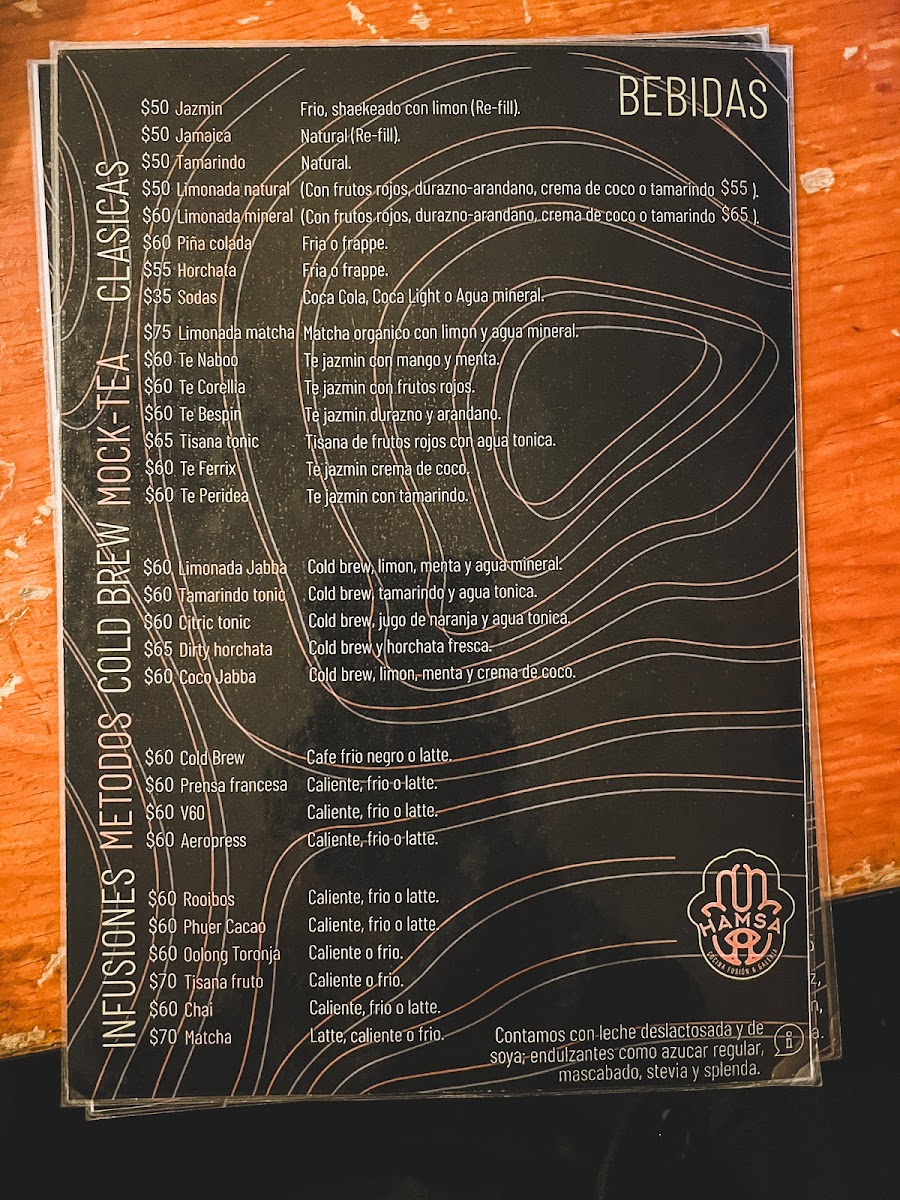 BEBIDAS
CLASICAS
$50 Jazmin Frio, shaekeado con limon (Re-fill).
$50 Jamaica Natural (Re-fill).
$50 Tamarindo Natural.
$50 Limonada natural (Con frutos rojos, durazno-arandano, crema de coco o tamarindo $55 ).
$60 Limonada mineral (Con frutos rojos, durazno-arandano, crema de coco o tamarindo $65 ).
$60 Piña colada Fria o frappe.
$55 Horchata Fria o frappe.
$35 Sodas Coca Cola, Coca Light o Agua mineral.
MOCK-TEA
$75 Limonada matcha Matcha organico con limon y agua mineral.
$60 Te Naboo Te jazmin con mango y menta.
$60 Te Corellia Te jazmin con frutos rojos.
$60 Te Bespin Te jazmin durazno y arandano.
$65 Tisana tonic Tisana de frutos rojos con agua tonica.
$60 Te Ferrix Te jazmin crema de coco.
$60 Te Peridea Te jazmin con tamarindo.
COLD BREW
$60 Limonada Jabba Cold brew, limon, menta y agua mineral.
$60 Tamarindo tonic Cold brew, tamarindo y agua tonica.
$60 Citric tonic Cold brew, jugo de naranja y agua tonica.
$65 Dirty horchata Cold brew y horchata fresca.
$60 Coco Jabba Cold brew, limon, menta y crema de coco.
METODOS
$60 Cold Brew Cafe frio negro o latte.
$60 Prensa francesa Caliente, frio o latte.
$60 V60 Caliente, frio o latte.
$60 Aeropress Caliente, frio o latte.
INFUSIONES
$60 Rooibos Caliente, frio o latte.
$60 Phuer Cacao Caliente, frio o latte.
$60 Oolong Toronja Caliente o frio.
$70 Tisana fruto Caliente o frio.
$60 Chai Caliente, frio o latte.
$70 Matcha Latte, caliente o frio.
HAMSA
COCINA FUSIÓN & GALERIA
Contamos con leche deslactosada y de
soya; endulzantes como azucar regular,
mascabado, stevia y splenda.